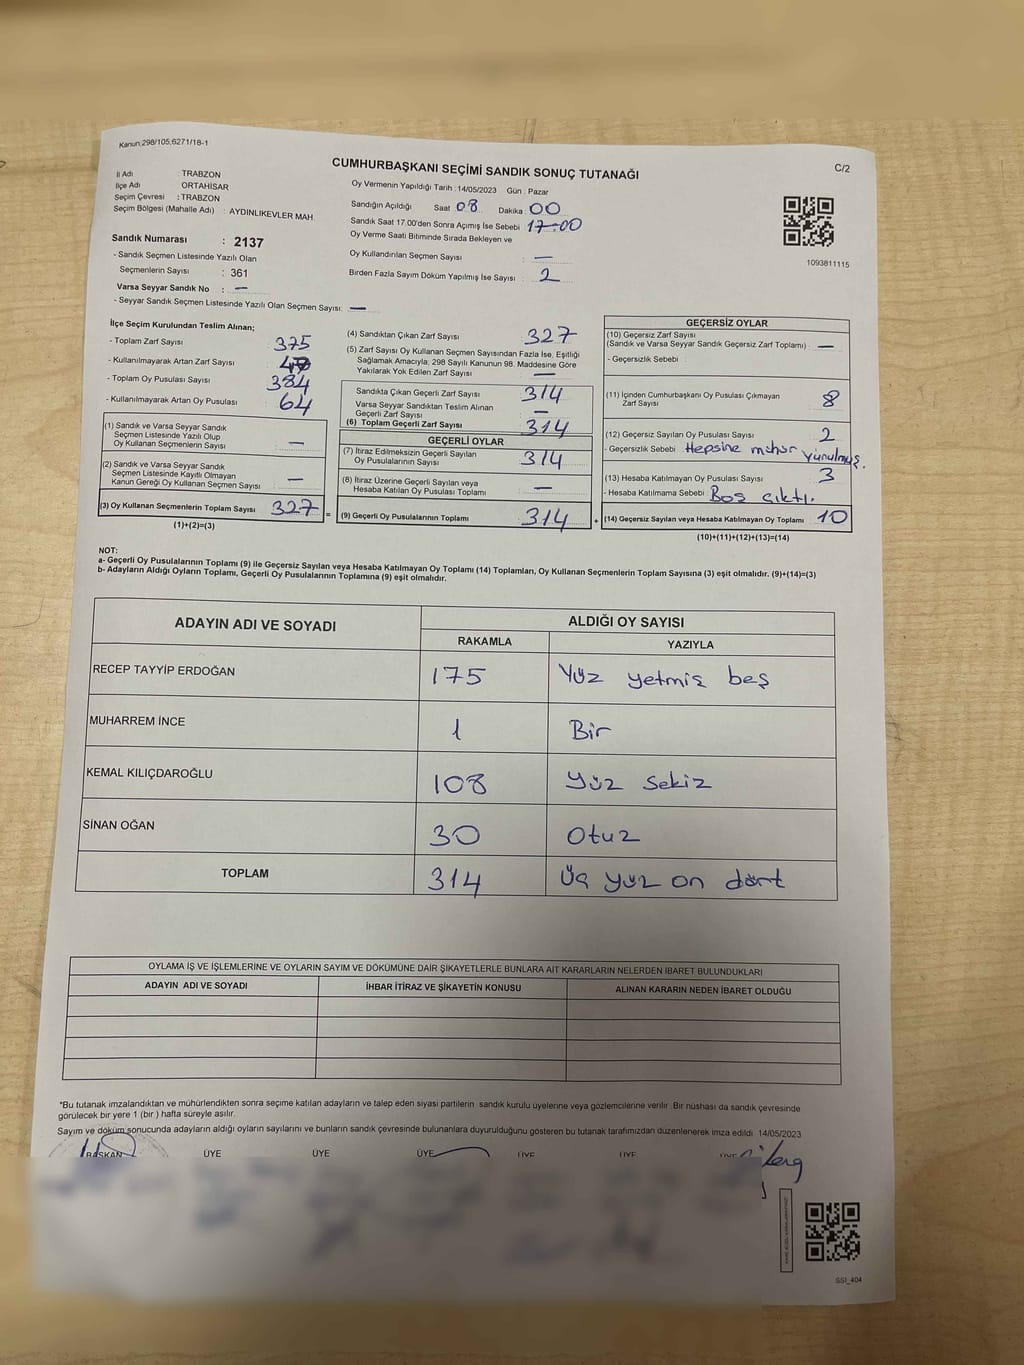 Kanun;298/105;6271/18-1
C/2
CUMHURBAŞKANI SEÇİMİ SANDIK SONUÇ TUTANAĞI
İl Adı : TRABZON
İlçe Adı : ORTAHİSAR
Seçim Çevresi : TRABZON
Seçim Bölgesi (Mahalle Adı) : AYDINLIKEVLER MAH
Sandık Numarası : 2137
- Sandık Seçmen Listesinde Yazılı Olan
Seçmenlerin Sayısı : 361
Varsa Seyyar Sandık No : —
- Seyyar Sandık Seçmen Listesinde Yazılı Olan Seçmen Sayısı: —
Oy Vermenin Yapıldığı Tarih : 14/05/2023 Gün : Pazar
Sandığın Açıldığı Saat 08 Dakika 00
Sandık Saat 17.00'den Sonra Açımış İse Sebebi 17-00
Oy Verme Saati Bitiminde Sırada Bekleyen ve
Oy Kullandırılan Seçmen Sayısı : —
Birden Fazla Sayım Döküm Yapılmış İse Sayısı : 2
1093811115
İlçe Seçim Kurulundan Teslim Alınan;
- Toplam Zarf Sayısı : 375
- Kullanılmayarak Artan Zarf Sayısı :
- Toplam Oy Pusulası Sayısı : 384
- Kullanılmayarak Artan Oy Pusulası : 64
(1) Sandık ve Varsa Seyyar Sandık
Seçmen Listesinde Yazılı Olup
Oy Kullanan Seçmenlerin Sayısı —
(2) Sandık ve Varsa Seyyar Sandık
Seçmen Listesinde Kayıtlı Olmayan
Kanun Gereği Oy Kullanan Seçmen Sayısı —
(3) Oy Kullanan Seçmenlerin Toplam Sayısı 327 =
(1)+(2)=(3)
(4) Sandıktan Çıkan Zarf Sayısı : 327
(5) Zarf Sayısı Oy Kullanan Seçmen Sayısından Fazla İse, Eşitliği
Sağlamak Amacıyla; 298 Sayılı Kanunun 98. Maddesine Göre
Yakılarak Yok Edilen Zarf Sayısı : —
Sandıkta Çıkan Geçerli Zarf Sayısı : 314
Varsa Seyyar Sandıktan Teslim Alınan
Geçerli Zarf Sayısı : —
(6) Toplam Geçerli Zarf Sayısı : 314
GEÇERLİ OYLAR
(7) İtiraz Edilmeksizin Geçerli Sayılan
Oy Pusulalarının Sayısı : 314
(8) İtiraz Üzerine Geçerli Sayılan veya
Hesaba Katılan Oy Pusulası Toplamı : —
(9) Geçerli Oy Pusulalarının Toplamı 314 +
GEÇERSİZ OYLAR
(10) Geçersiz Zarf Sayısı
(Sandık ve Varsa Seyyar Sandık Geçersiz Zarf Toplamı) : —
- Geçersizlik Sebebi :
(11) İçinden Cumhurbaşkanı Oy Pusulası Çıkmayan
Zarf Sayısı : 8
(12) Geçersiz Sayılan Oy Pusulası Sayısı : 2
- Geçersizlik Sebebi Hepsine mühür vurulmuş.
(13) Hesaba Katılmayan Oy Pusulası Sayısı : 3
- Hesaba Katılmama Sebebi : Boş çıktı.
(14) Geçersiz Sayılan veya Hesaba Katılmayan Oy Toplamı 10
(10)+(11)+(12)+(13)=(14)
NOT:
a- Geçerli Oy Pusulalarının Toplamı (9) ile Geçersiz Sayılan veya Hesaba Katılmayan Oy Toplamı (14) Toplamları, Oy Kullanan Seçmenlerin Toplam Sayısına (3) eşit olmalıdır. (9)+(14)=(3)
b- Adayların Aldığı Oyların Toplamı, Geçerli Oy Pusulalarının Toplamına (9) eşit olmalıdır.
ADAYIN ADI VE SOYADI ALDIĞI OY SAYISI
RAKAMLA YAZIYLA
RECEP TAYYİP ERDOĞAN 175 Yüz yetmiş beş
MUHARREM İNCE 1 Bir
KEMAL KILIÇDAROĞLU 108 Yüz sekiz
SİNAN OĞAN 30 Otuz
TOPLAM 314 Üç yüz on dört
OYLAMA İŞ VE İŞLEMLERİNE VE OYLARIN SAYIM VE DÖKÜMÜNE DAİR ŞİKAYETLERLE BUNLARA AİT KARARLARIN NELERDEN İBARET BULUNDUKLARI
ADAYIN ADI VE SOYADI İHBAR İTİRAZ VE ŞİKAYETİN KONUSU ALINAN KARARIN NEDEN İBARET OLDUĞU
*Bu tutanak imzalandıktan ve mühürlendikten sonra seçime katılan adayların ve talep eden siyasi partilerin sandık kurulu üyelerine veya gözlemcilerine verilir. Bir nüshası da sandık çevresinde
görülecek bir yere 1 (bir ) hafta süreyle asılır.
Sayım ve döküm sonucunda adayların aldığı oyların sayılarını ve bunların sandık çevresinde bulunanlara duyurulduğunu gösteren bu tutanak tarafımızdan düzenlenerek imza edildi 14/05/2023
BAŞKAN ÜYE ÜYE ÜYE ÜYE ÜYE ÜYE
SSI_404